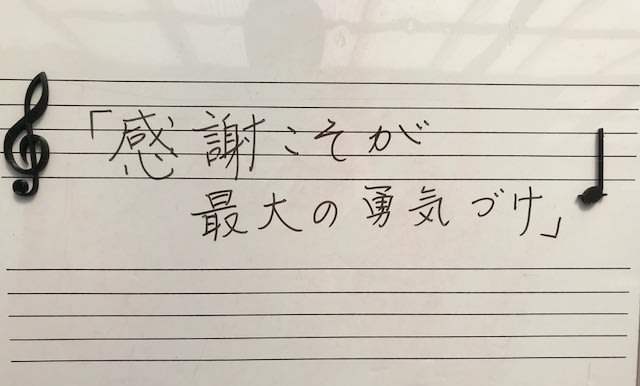 「感謝こそが
最大の勇気づけ」